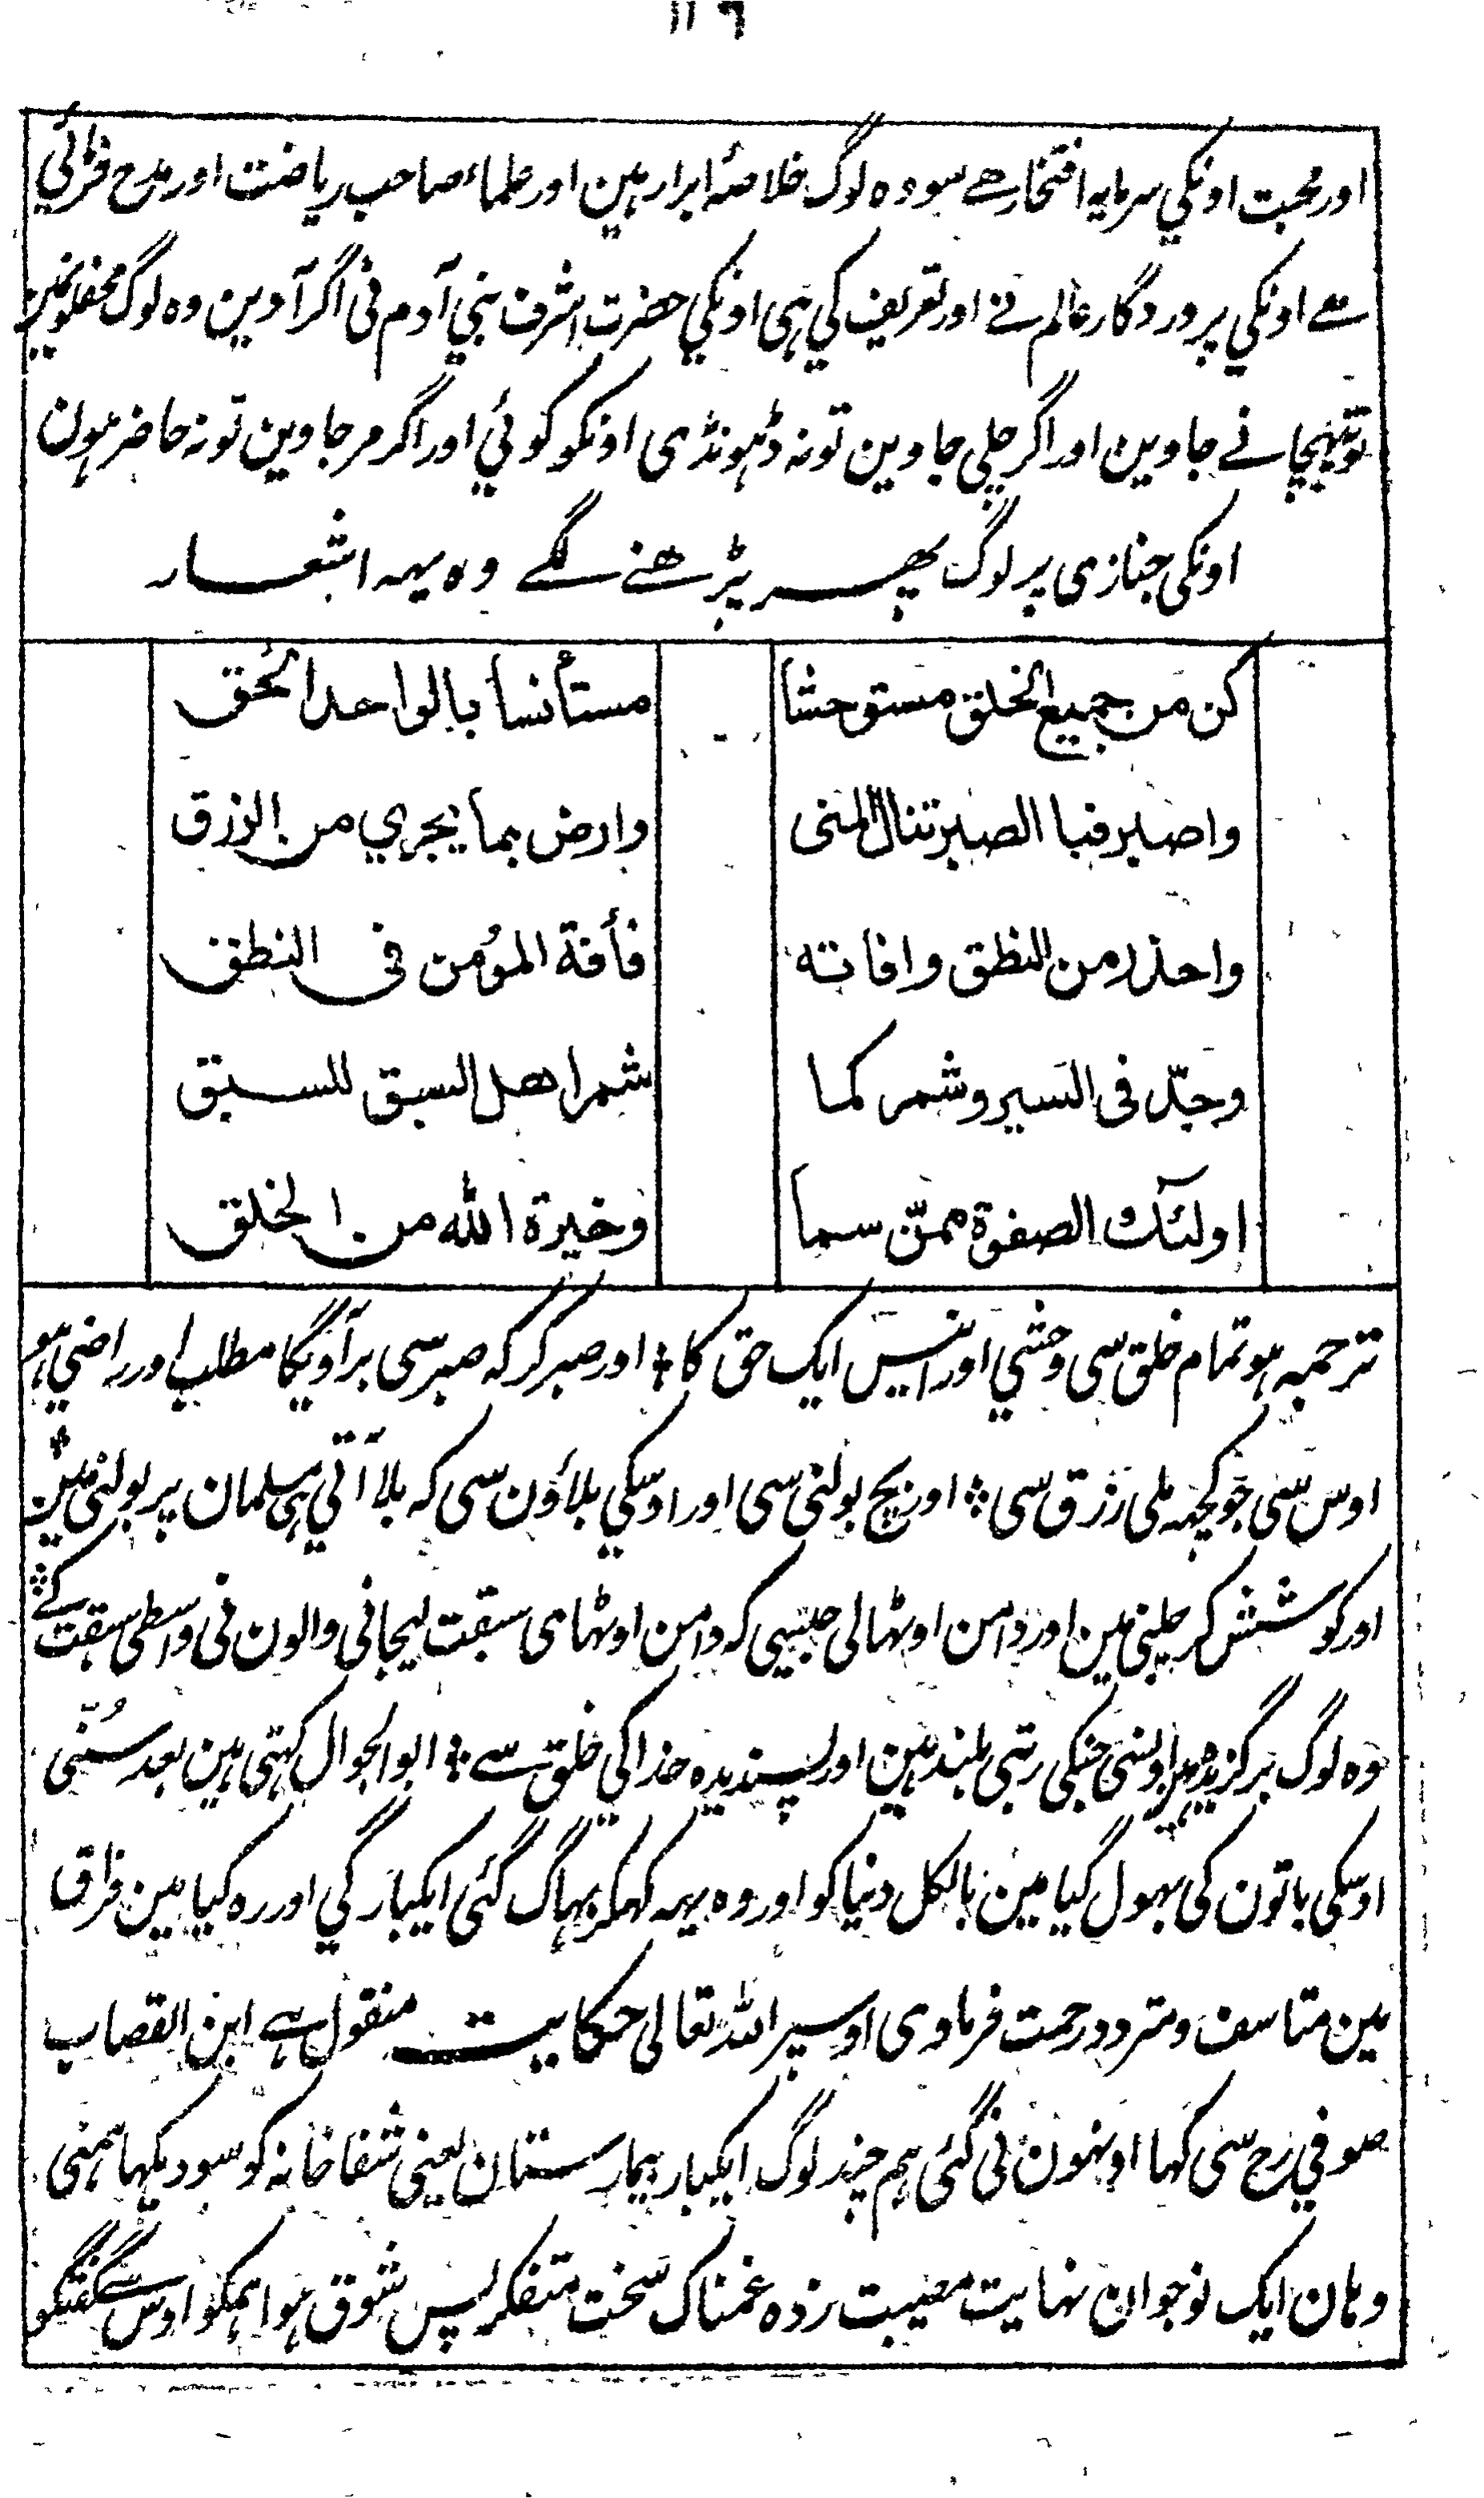 ۱۱۶
اور محبت اونکي سرمایه افتخار هے سو وه لوگ خلاصهٔ ابرار ہین اور علماء صاحب ریاضت اور مدح فرمائي
ہے اونکي پروردگار عالم نے اور تعریف کي ہی اونکي حضرت اشرف بني آدم نی اگر آوین وه لوگ محفلونمین
تو نہ پہچانے جاوین اور اگر چلی جاوین تو نہ ڈہونڈی اونکو کوئي اور اگر مر جاوین تو نہ حاضر ہون
اونکی جنازی پر لوگ پھر پڑھنے لگے وه یہہ اشعار
کن من جمیع الخلق مستوحشا مستأنسا بالواحد الحق
واصبر فبا الصبر تنال المنی وارض بما یجري من الرزق
واحذر من النطق وافاته فأفة المؤمن فی النطق
وجدّ فی السیر وشمر کما شمر اهل السبق للسبق
اولئک الصفوة ممّن سما وخیرة الله من الخلق
ترجمہ ہو تمام خلق سی وحشي اور انیس ایک حق کا؛ اور صبر کر کہ صبر سی برآویگا مطلب اور راضي ہو
اوس سی جو کچہہ ملی رزق سی؛ اور بچ بولنی سی اور اوسکي بلاؤن سی کہ بلا آتي ہی مسلمان پر بولنی مین؛
اور کوشش کر چلنی مین اور دامن اوٹہالی جیسی کہ دامن اوٹہای سبقت لیجانی والون نی واسطی سبقت کے؛
وه لوگ برگزیده ہین اونسی جنکی رتبی بلند ہین اور پسندیده خدا کي خلق سے؛ ابو الجوال کہتی ہین بعد سُننی
اوسکی باتون کی بہول گیا مین بالکل دنیا کو اور وه یہہ کہکر بہاگ گئی ایکبارگي اور ره گیا مین فراق
مین متاسف و متردد رحمت فرماوی اوسپر الله تعالی حکایت منقول ہے ابن القصاب
صوفي رح سی کہا اونہون نی گئی ہم چند لوگ ایکبار بیمارستان یعنی شفاخانہ کو سو دیکہا ہمنی
وہان ایک نوجوان نہایت مصیبت زده غمناک سخت متفکر پس شوق ہوا ہمکو اوس سے گفتگو